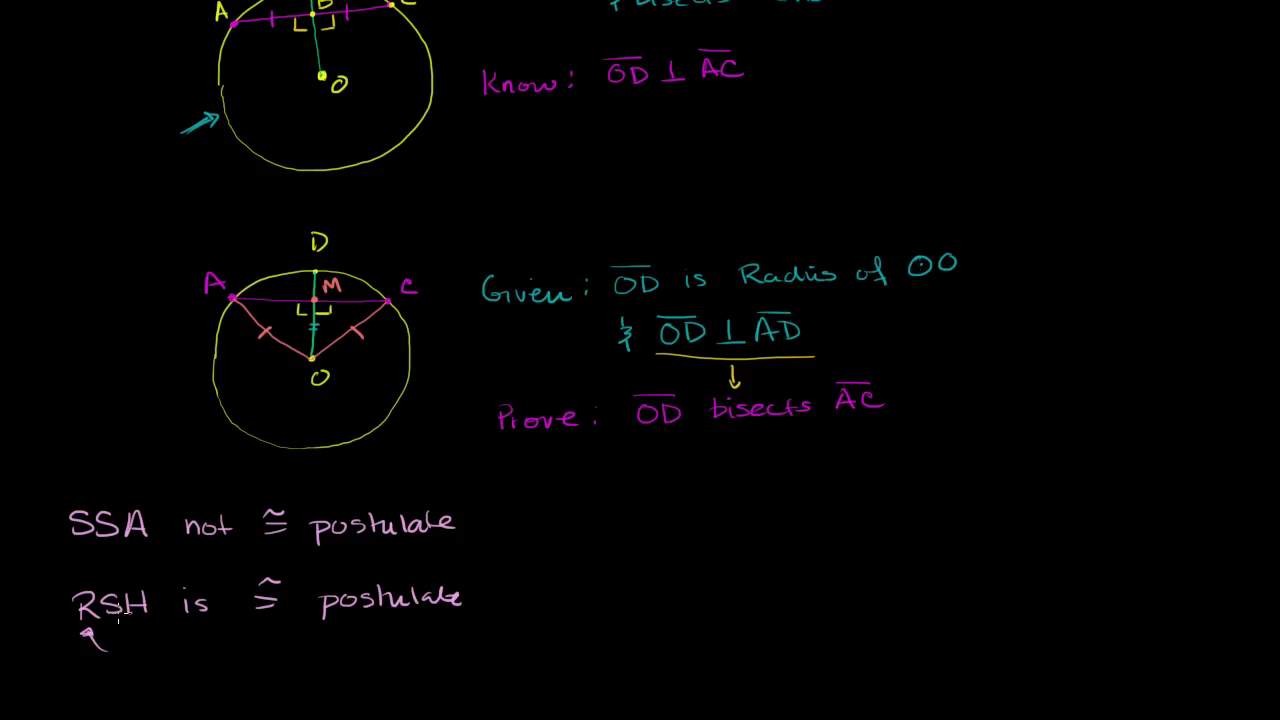 A B C
O
Know: OD ⊥ AC
D
A M C
O
Given: OD is Radius of ⊙O
& OD ⊥ AD
Prove: OD bisects AC
SSA not ≅ postulate
RSH is ≅ postulate